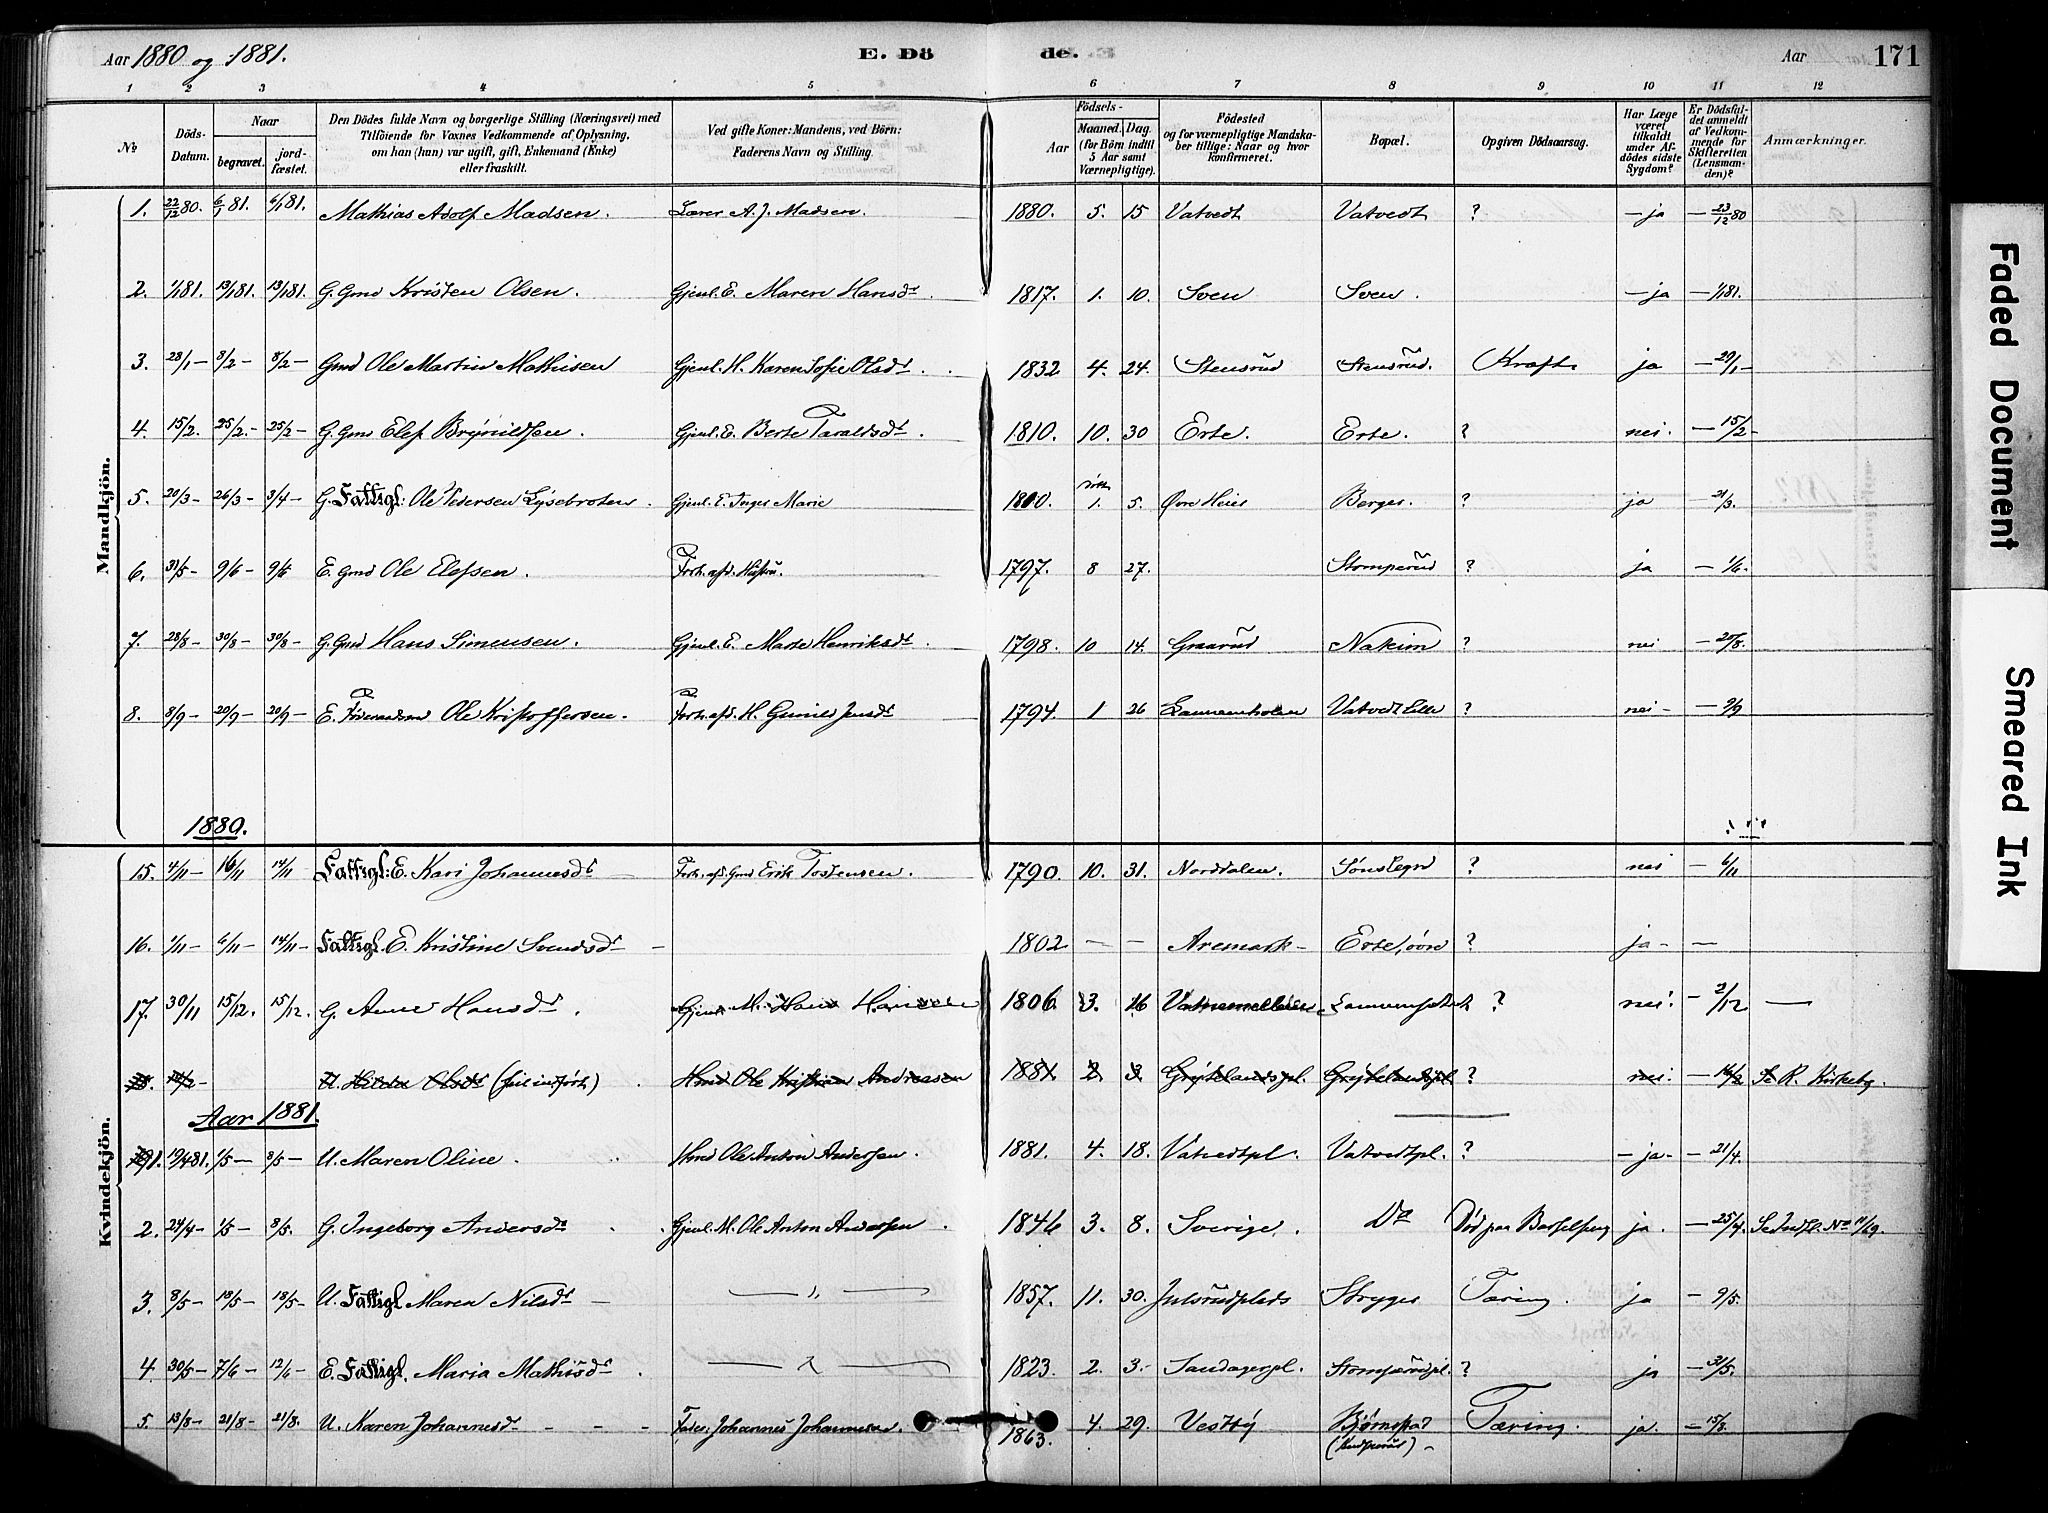 Aar 1880 og 1881. E. Dö de. Aar 171
1 2 3 4 5 6 7 8 9 10 11 12
No Döds-Datum. Naar begravet. jordfæstet. Den Dödes fulde Navn og borgerlige Stilling (Næringsvei) med Tilföiende for Voxnes Vedkommende af Oplysning, om han (hun) var ugift, gift, Enkemand (Enke) eller fraskilt. Ved gifte Koner: Mandens, ved Börn: Faderens Navn og Stilling. Födsels- Aar Maaned. Dag. (for Börn indtil 5 Aar samt Værnepligtige). Födested og for værnepligtige Mandskaber tillige: Naar og hvor konfirmeret. Bopæl. Opgiven Dödsaarsag. Har Læge været tilkaldt under Afdödes sidste Sygdom? Er Dödsfaldet anmeldt af Vedkommende for Skifteretten (Lensmanden)? Anmærkninger.
Mandkjön.
1. 22/12 80. 6/1 81. 6/1 81. Mathias Adolf Madsen. Lærer A. J. Madsen. 1880. 5. 15 Vatvedt Vatvedt ? – ja – 23/12 80
2. 1/1 81. 13/1 81. 13/1 81. G. Gmd Kristen Olsen. Gjenl. E. Maren Hansdt. 1817. 1. 10. Sven Sven. – ja – 1/1 81.
3. 28/1 – 8/2 – 8/2 – Gmd Ole Martin Mathisen Gjenl. H. Karen Sofie Olsdt. 1832 4. 24. Stensrud Stensrud. Kræft. ja – 29/1 –
4. 15/2. 25/2. – 25/2 – G. Gmd Elef Brynildsen. Gjenl. E. Berte Taraldsdt. 1810. 10. 30 Erte. Erte. ? nei. – 15/2 –
5. 20/3 – 26/3 – 3/4 – G. Fattigl: Ole Pedersen Lysebroten. Gjenl. E. Inger Marie 1800. 1. 5. Øvre Heier Berger. ? ja – 21/3.
6. 31/5 – 9/6 – 9/6 E. Gmd Ole Elefsen. Forh. afd. Hustru. 1797. 8 27. Stomperud ? ja – 1/6.
7. 28/8 – 30/8 – 30/8 – G. Gmd Hans Simensen. Gjenl. E. Marte Henriksdt. 1798. 10 14. Graarud Nakim ? nei – 29/8.
8. 8/9 – 20/9 – 20/9 – E. Föderaadsmd Ole Kristoffersen. Forh. afd. H. Gunild Jensdt 1794. 1 26 Lannemholen Vatvedt lille ? nei – – 9/9
1880.
Kvindekjön.
15. 4/11 – 16/11 14/11 Fattigl: E. Kari Johannesdt Forh. afd. Gmd Erik Tostensen. 1790. 10. 31. Norddalen. Sönstegn ? nei – 6/11
16. 1/11 – 6/11 – 14/11 – Fattigl. E. Kristine Svendsdt – 1802 – – Aremark – Erte, övre ? ja – –
17. 30/11 15/12. 15/12. G. Anne Hansdt. Gjenl. M. Hans Hansen 1806. 3. 16 Lannemsætet ? nei. – 2/12 –
18. 14/2 – U. Hilda Olsdt (feil indført) Hmd Ole Kristian Andreasen 1881 2 3 Grejtelandspl. Grejtelandspl ? nei. – 16/2 Se R. Kirkeby.
Aar 1881.
1. 19/4 81. 1/5 – 8/5 – U. Maren Oline. Hmd Ole Anton Andersen. 1881. 4. 18. Vatvedtpl. Vatvedtpl. ? – ja – – 21/4.
2. 24/4 – 1/5 – 8/5. G. Ingeborg Andersdt Gjenl. M. Ole Anton Andersen. 1846 3. 8. Sverige. Do Död paa Barselseng ja. – 25/4. Se Indfl. No 11/69.
3. 8/5 – 18/5 – 18/5 – U. Fattigl Maren Nilsdt – – „ – 1857. 11. 30. Julsrudplads Strygen Tæring. ja – 9/5.
4. 30/5 – 7/6 – 12/6 – E. Fattigl. Maria Mathisdt. – „ – 1823. 2. 3. – Sandagerpl. Stomperudpl. ? ja – 31/5.
5. 13/8 – 21/8 – 21/8. U. Karen Johannesdt – – – Fader: Johannes Johannesen. 1863. 4. 29. Vestby Björnstad Tæring. ja. – 15/8.
Faded Document
Smeared Ink